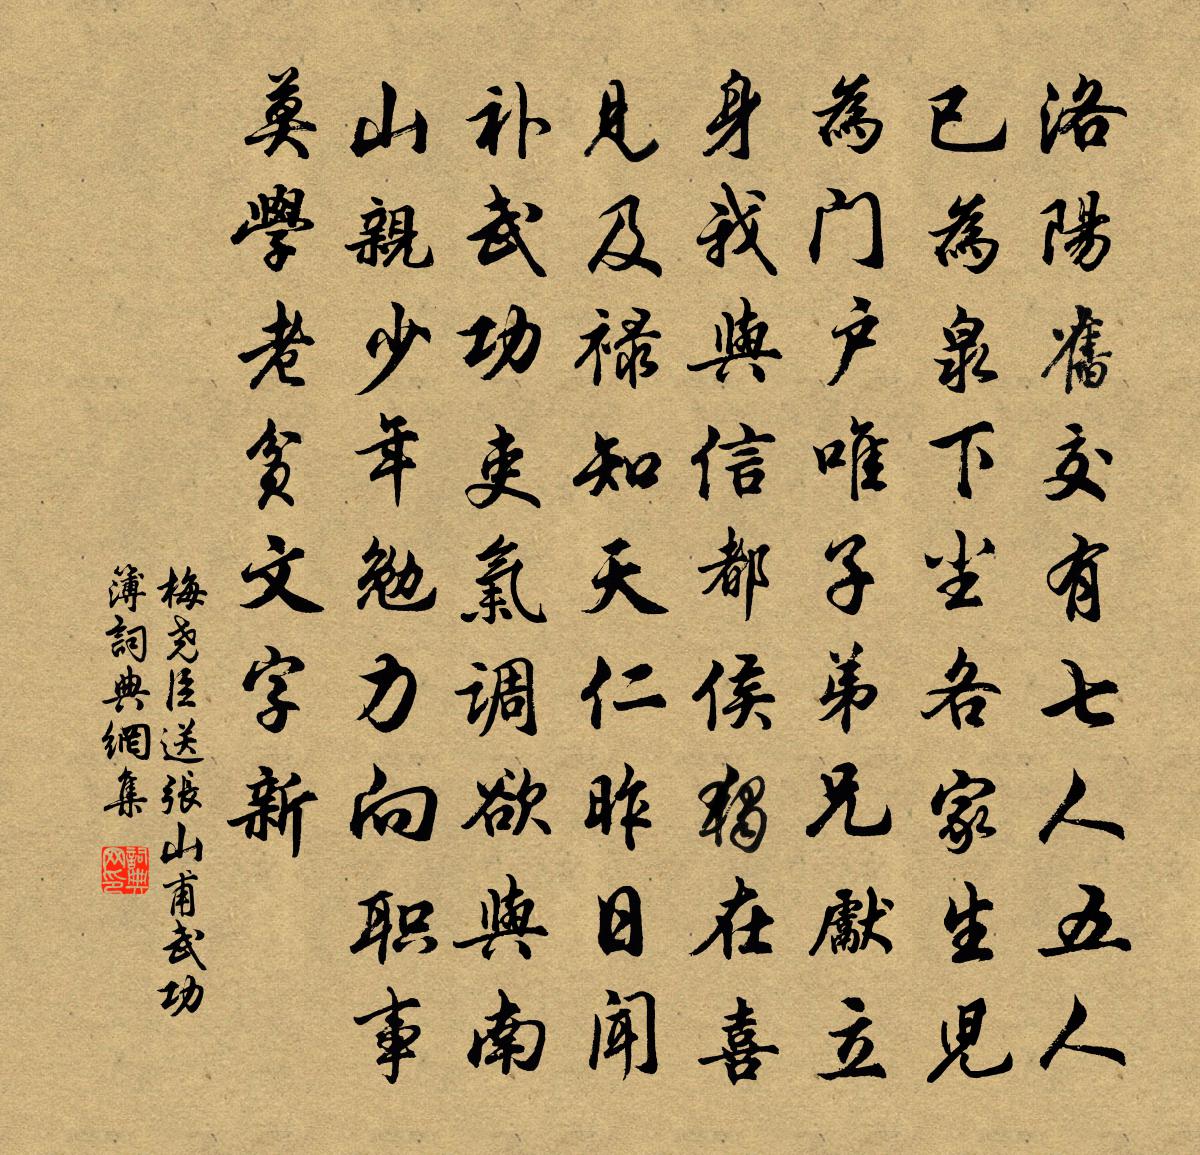 洛陽舊交有七人五人
已為泉下尘各家生児
為门户唯子弟兄獻立
身我與信都侯獨在喜
見及禄知天仁昨日闻
补武功吏氣调欲與南
山親少年勉力向职事
莫學老貧文字新
梅尧臣送張山甫武功
簿詞典網集
詞典网印